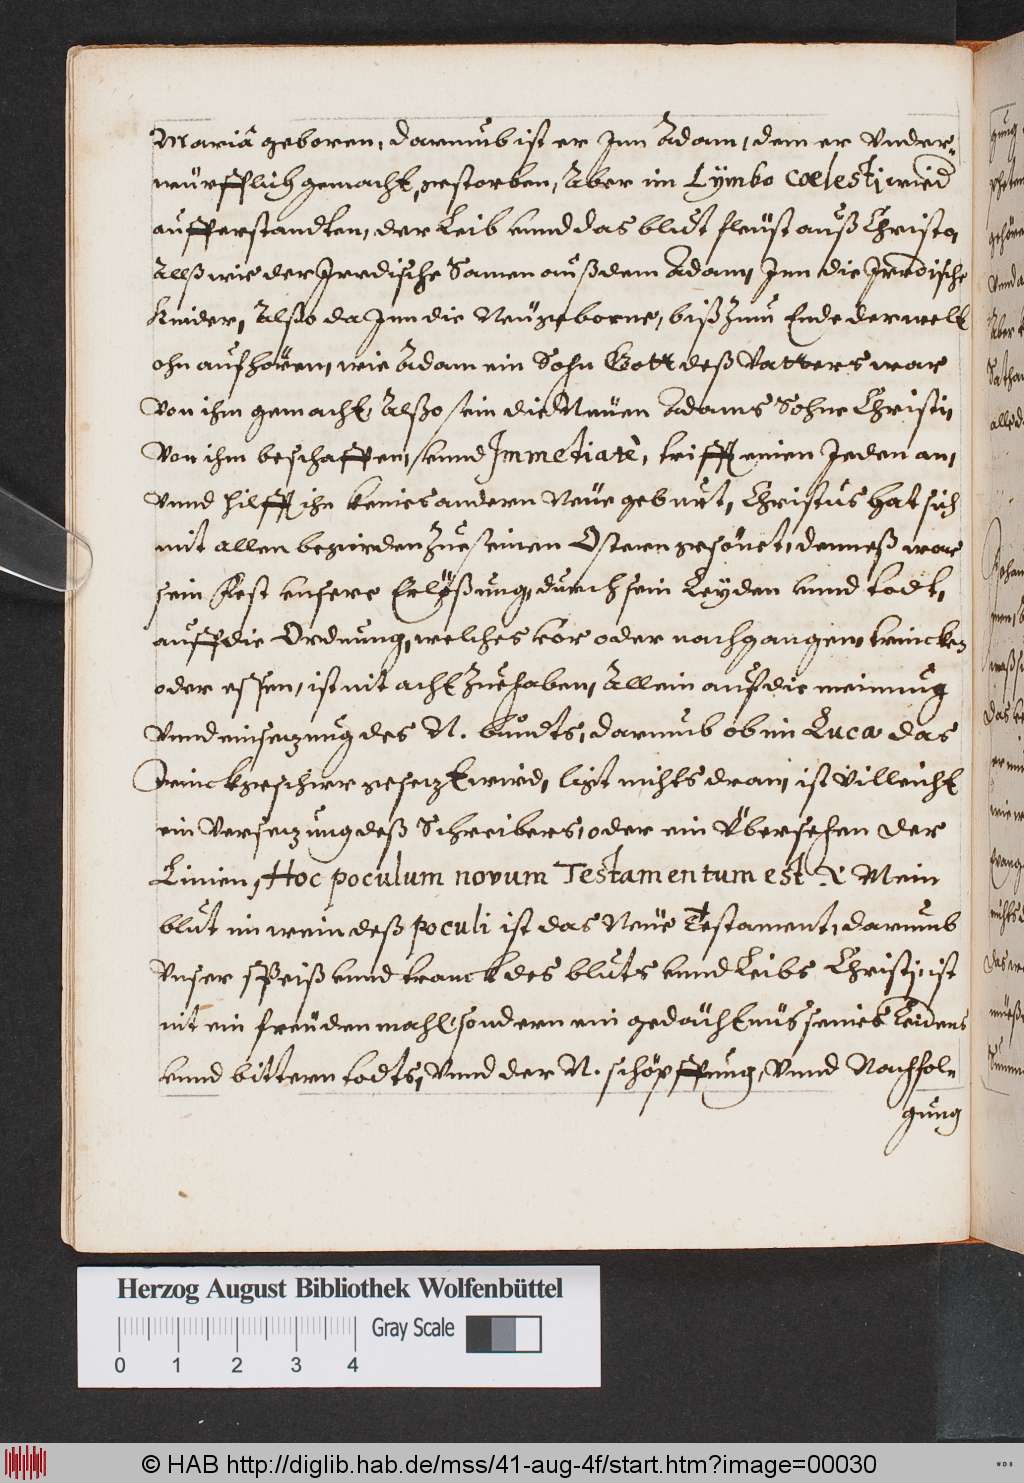 Mariâ geboren, darumb ist er Inn Adam, dem er Vnder-
würfflich gemacht, gestorben, Aber im Lÿmbo cœlesti wied
aufferstandten, der Leib vnnd das blüt fleüst auß Christo,
Allß wie der Irrdische Samen auß dem Adam, Inn die Irrdische
Kinder, Alßo da Inn die Neügeborne, biß Zum Ende der welt
ohn aufhören, wie Adam ein Sohn Gott deß Vatters war
Von ihm gemacht, Alßo sein die Neüen Adams Söhne Christi,
Von ihm beschaffen, vnnd Immetiatè, trifft einen Jeden an,
Vnnd hilfft ihn keines andern Neüe geburt, Christus hat sich
mit allen begirden Zue seinen Ostern gesönet, denn eß war
sein Fest vnsere Erlößung, durch sein Leyden vnnd todt,
auff die Ordnung, welches vor oder nachgangen, trincken
oder essen, ist nit acht Zue haben, Allein auf die meinung
Vnnd einsezung des N. bundts, darumb ob im Luca das
Trinckgeschirr gesezt wird, ligt nichts dran, ist villeicht
ein Versezung deß Schreibers, oder ein Übersehen der
Linien, Hoc poculum novum Testamentum est .i. Mein
blut im wein deß poculi ist das Neüe Testament, darumb
Vnser speiß vnnd tranck des bluts vnnd Leibs Christi, ist
nit ein freüdenmahl, sondern ein gedächtnüs seines Leidens
vnnd bittern todts, Vnnd der N. schöpffung, Vnnd Nachfol-
gung
Herzog August Bibliothek Wolfenbüttel
Gray Scale
0 1 2 3 4
© HAB http://diglib.hab.de/mss/41-aug-4f/start.htm?image=00030